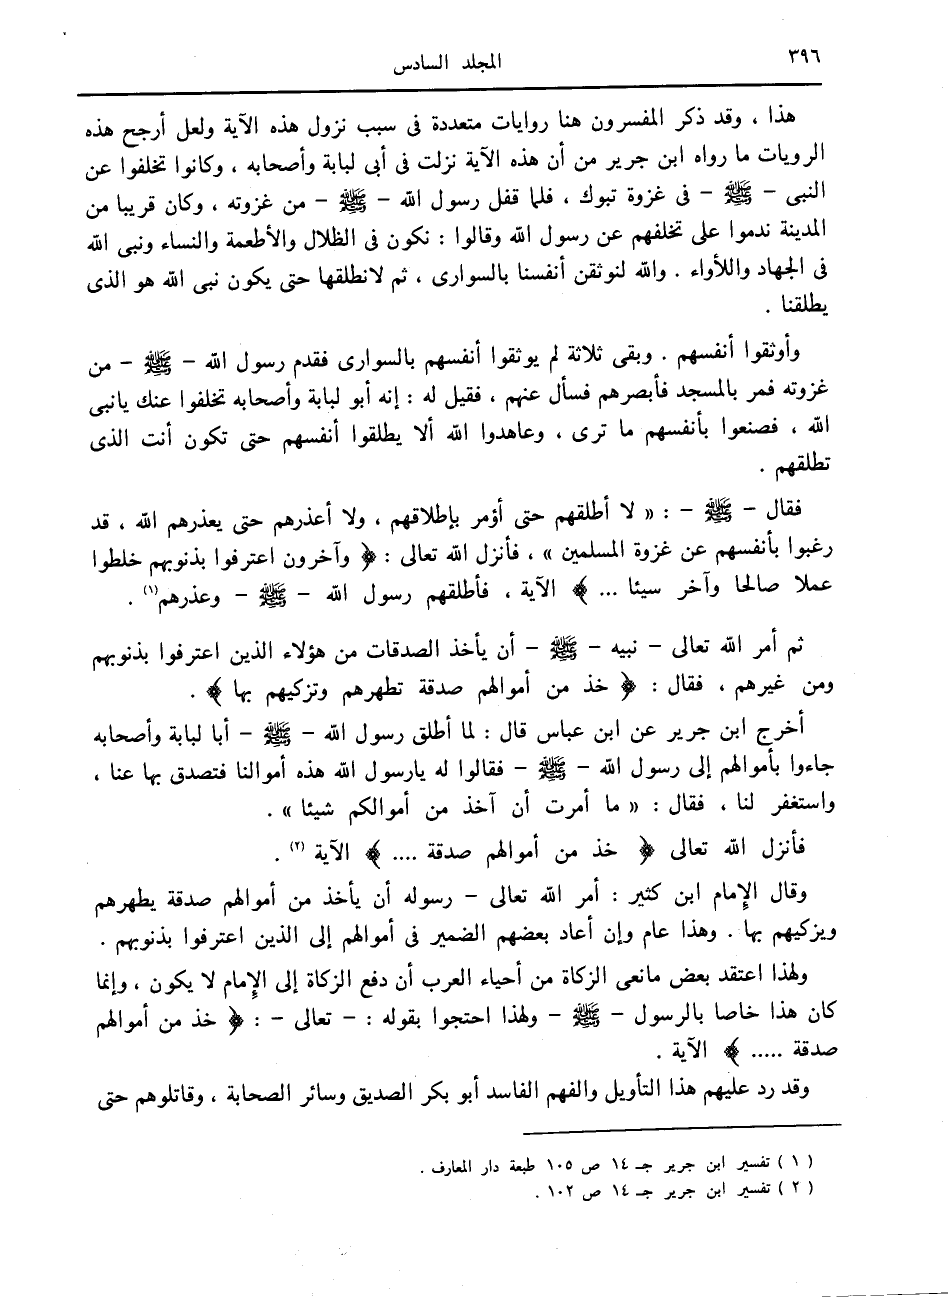 ٣٩٦
المجلد السادس
هذا ، وقد ذكر المفسرون هنا روايات متعددة فى سبب نزول هذه الآية ولعل أرجح هذه
الرويات ما رواه ابن جرير من أن هذه الآية نزلت فى أبى لبابة وأصحابه ، وكانوا تخلفوا عن
النبى – ﷺ – فى غزوة تبوك ، فلما قفل رسول الله – ﷺ – من غزوته ، وكان قريبا من
المدينة ندموا على تخلفهم عن رسول الله وقالوا : نكون فى الظلال والأطعمة والنساء ونبى الله
فى الجهاد واللأواء . والله لنوثقن أنفسنا بالسوارى ، ثم لانطلقها حتى يكون نبى الله هو الذى
يطلقنا .
وأوثقوا أنفسهم . وبقى ثلاثة لم يوثقوا أنفسهم بالسوارى فقدم رسول الله – ﷺ – من
غزوته فمر بالمسجد فأبصرهم فسأل عنهم ، فقيل له : إنه أبو لبابة وأصحابه تخلفوا عنك يانبى
الله ، فصنعوا بأنفسهم ما ترى ، وعاهدوا الله ألا يطلقوا أنفسهم حتى تكون أنت الذى
تطلقهم .
فقال – ﷺ – : « لا أطلقهم حتى أؤمر بإطلاقهم ، ولا أعذرهم حتى يعذرهم الله ، قد
رغبوا بأنفسهم عن غزوة المسلمين » ، فأنزل الله تعالى : ﴿ وآخرون اعترفوا بذنوبهم خلطوا
عملا صالحا وآخر سيئا ... ﴾ الآية ، فأطلقهم رسول الله – ﷺ – وعذرهم(١) .
ثم أمر الله تعالى – نبيه – ﷺ – أن يأخذ الصدقات من هؤلاء الذين اعترفوا بذنوبهم
ومن غيرهم ، فقال : ﴿ خذ من أموالهم صدقة تطهرهم وتزكيهم بها ﴾ .
أخرج ابن جرير عن ابن عباس قال : لما أطلق رسول الله – ﷺ – أبا لبابة وأصحابه
جاءوا بأموالهم إلى رسول الله – ﷺ – فقالوا له يارسول الله هذه أموالنا فتصدق بها عنا ،
واستغفر لنا ، فقال : « ما أمرت أن آخذ من أموالكم شيئا » .
فأنزل الله تعالى ﴿ خذ من أموالهم صدقة .... ﴾ الآية (٢) .
وقال الإمام ابن كثير : أمر الله تعالى – رسوله أن يأخذ من أموالهم صدقة يطهرهم
ويزكيهم بها . وهذا عام وإن أعاد بعضهم الضمير فى أموالهم إلى الذين اعترفوا بذنوبهم .
ولهذا اعتقد بعض مانعى الزكاة من أحياء العرب أن دفع الزكاة إلى الإمام لا يكون ، وإنما
كان هذا خاصا بالرسول – ﷺ – ولهذا احتجوا بقوله : – تعالى – : ﴿ خذ من أموالهم
صدقة ..... ﴾ الآية .
وقد رد عليهم هذا التأويل والفهم الفاسد أبو بكر الصديق وسائر الصحابة ، وقاتلوهم حتى
( ١ ) تفسير ابن جرير جـ ١٤ ص ١٠٥ طبعة دار المعارف .
( ٢ ) تفسير ابن جرير جـ ١٤ ص ١٠٢ .